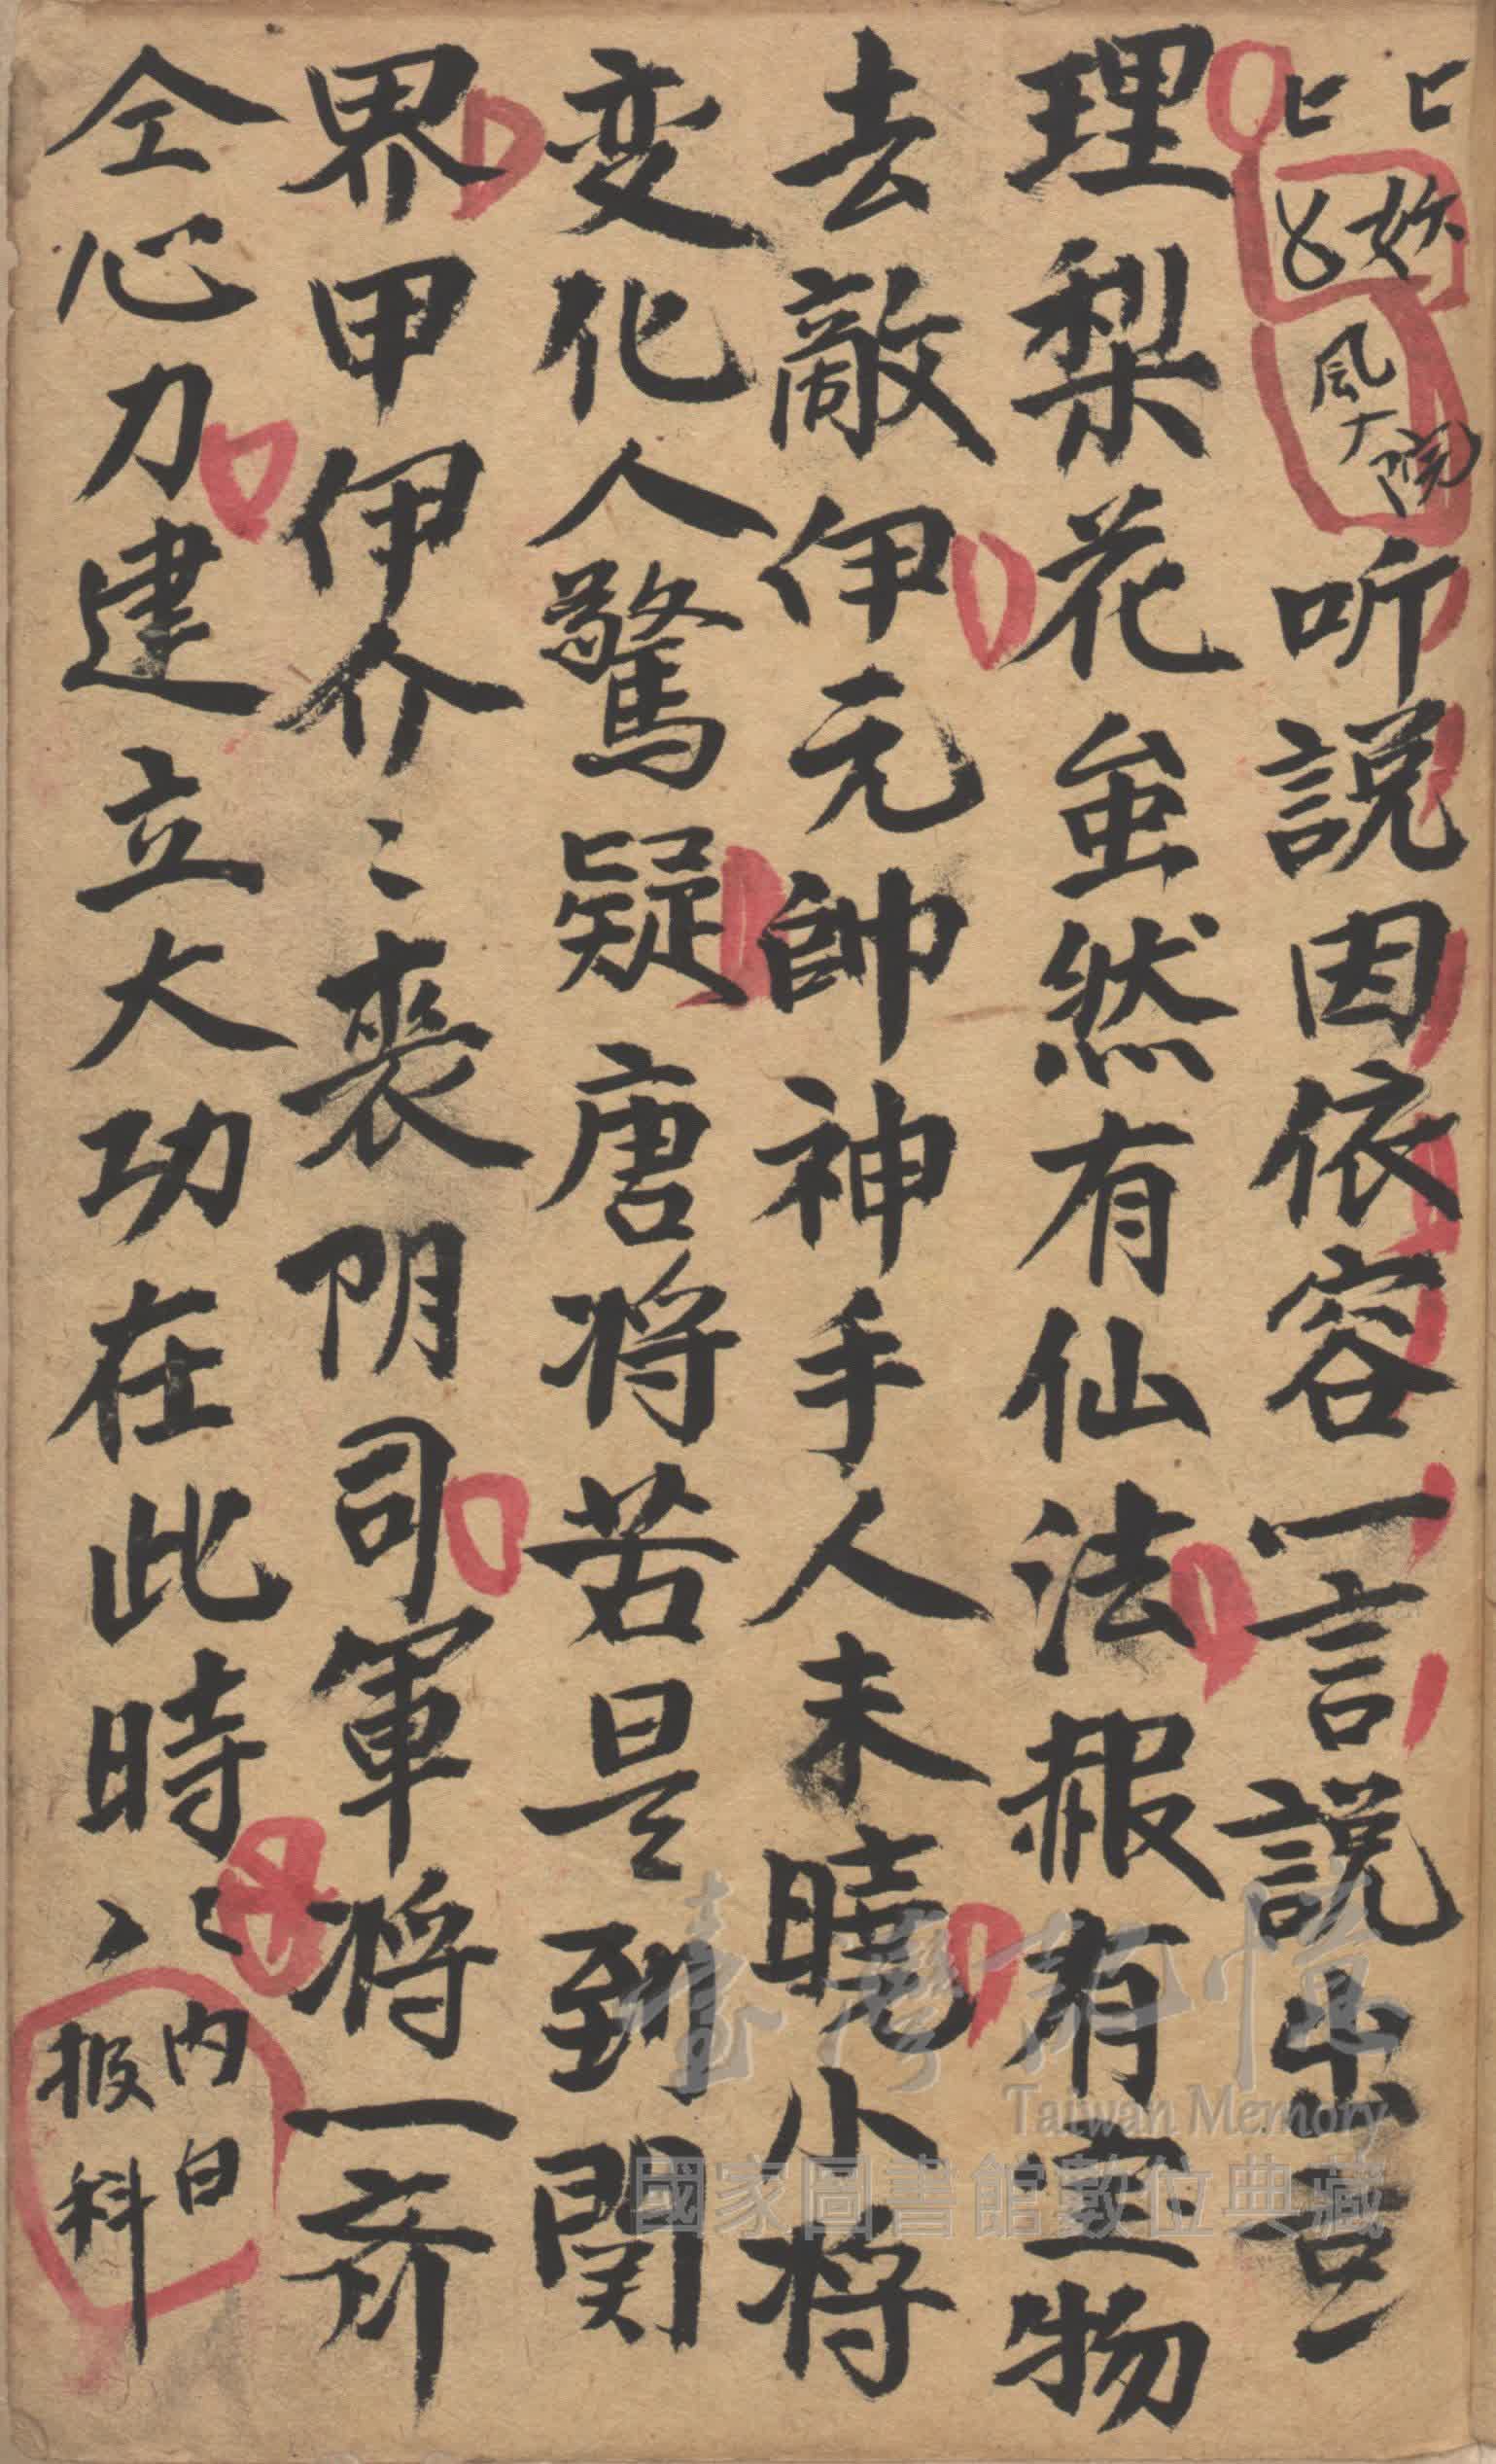 听説因依容一言説出言
理梨花虽然有仙法赧有宝物
去敵伊元帥神手人未曉小将
变化人驚疑唐将苦是到関
界甲伊介〻喪阴司軍将一齐
仝心力建立大功在此時
内白
报科
臺灣記憶
Taiwan Memory
國家圖書館數位典藏